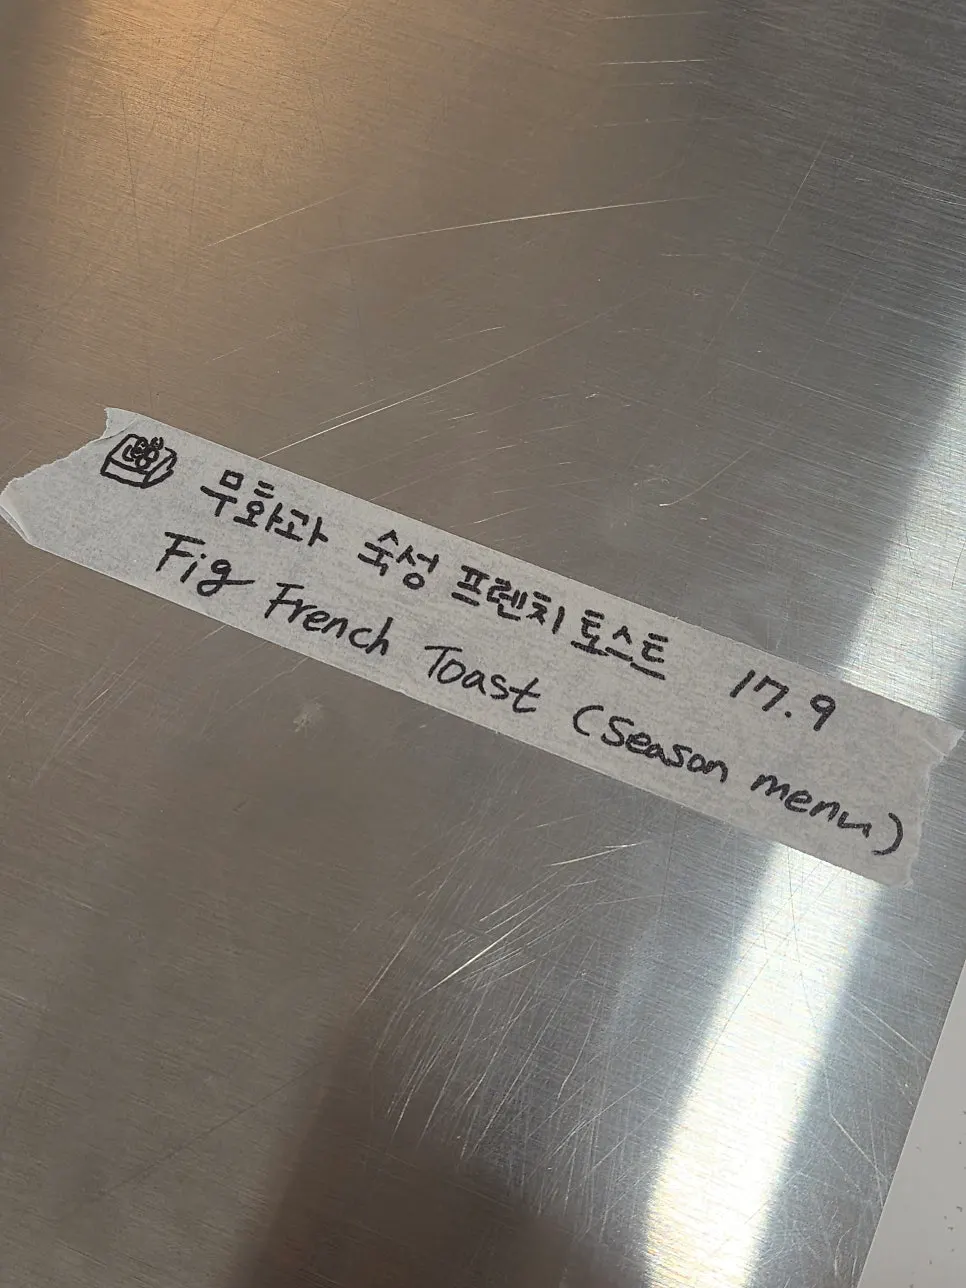 무화과 숙성 프렌치토스트 17.9
Fig French Toast (Season menu)